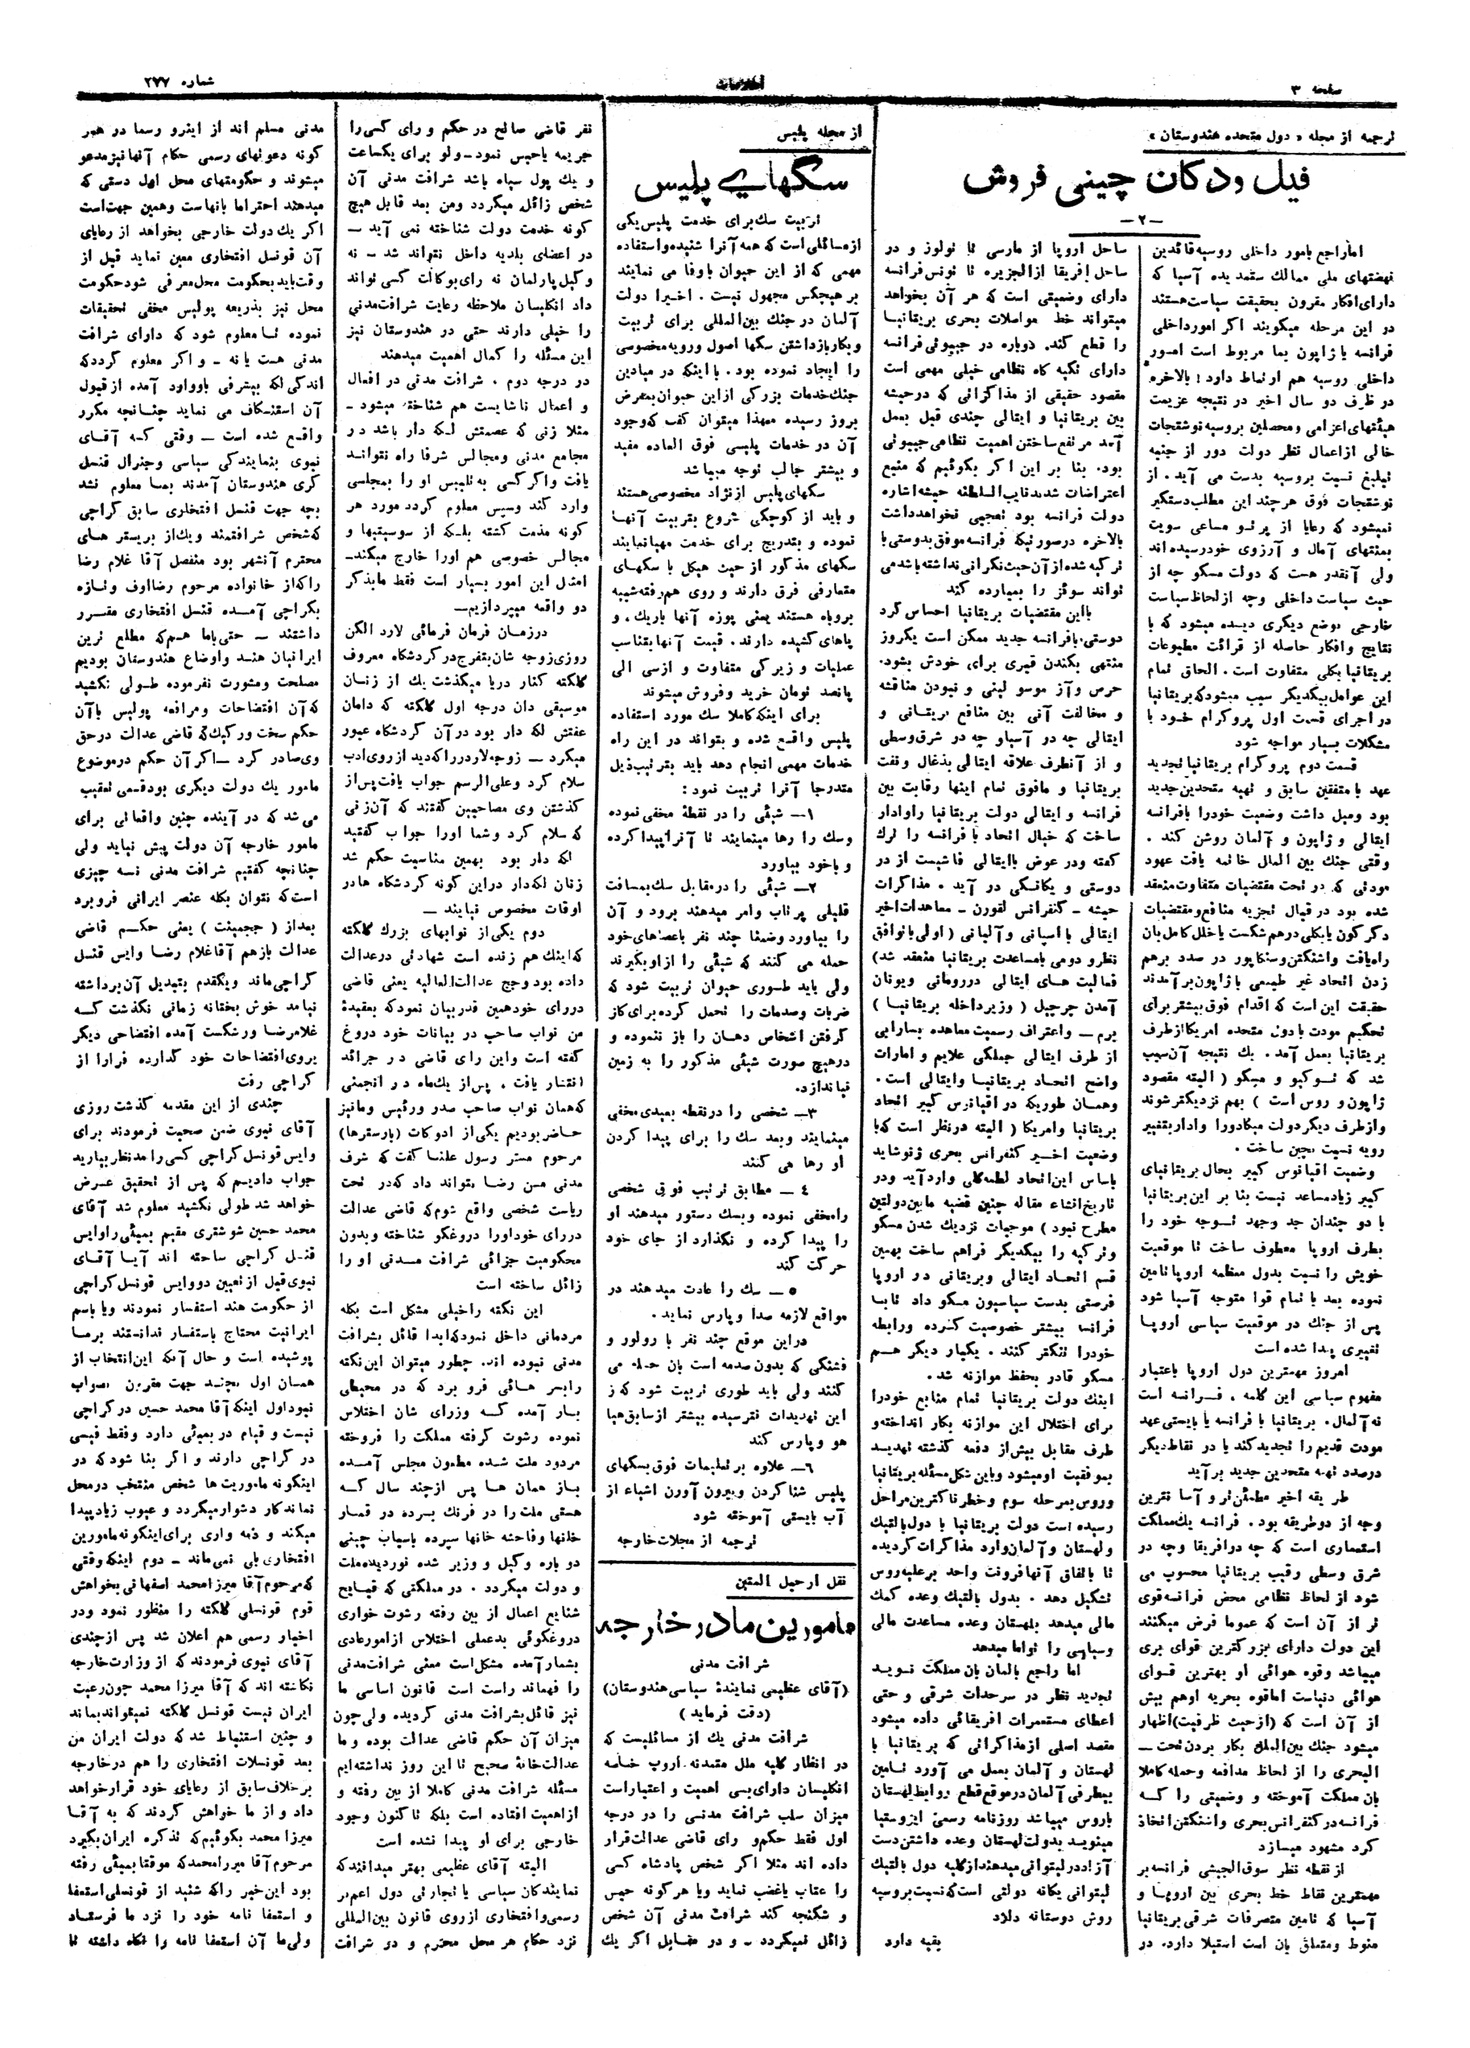 صفحه ۳
اطلاعات
شماره ۲۷۷
ترجمه از مجله « دول متحده هندوستان »
فیل و دکان چینی فروش
-۲-
اما راجع بامور داخلی روسیه قائدین
نهضتهای ملی ممالك ستمدیده آسیا که
دارای افکار مقرون بحقیقت سیاست هستند
در این مرحله میگویند اگر امور داخلی
فرانسه یا ژاپون بما مربوط است امور
داخلی روسیه هم ارتباط دارد! بالاخره
در ظرف دو سال اخیر در نتیجه عزیمت
هیئتهای اعزامی و محصلین بروسیه نوشتجات
خالی از اعمال نظر دولت دور از جنبه
تبلیغ نسبت بروسیه بدست می آید . از
نوشتجات فوق هر چند این مطلب دستگیر
نمیشود که رعایا از پرتو مساعی سویت
بمنتهای آمال و آرزوی خود رسیده اند
ولی آنقدر هست که دولت مسکو چه از
حیث سیاست داخلی وچه از لحاظ سیاست
خارجی بوضع دیگری دیده میشود که با
نتایج وافکار حاصله از قرائت مطبوعات
بریتانیا بکلی متفاوت است . الحاق تمام
این عوامل بیکدیگر سبب میشود که بریتانیا
در اجرای قسمت اول پروگرام خود با
مشکلات بسیار مواجه شود
قسمت دوم پروگرام بریتانیا تجدید
عهد با متفقین سابق و تهیه متحدین جدید
بود ومیل داشت وضعیت خود را با فرانسه
ایتالی و ژاپون و آلمان روشن کند .
وقتی جنك بین الملل خاتمه یافت عهود
مودتی که در تحت مقتضیات متفاوت منعقد
شده بود در قبال تجزیه منافع و مقتضیات
دگرگون یا بکلی درهم شکست یا خلل کامل بان
راه یافت واشنگتن و سنگاپور در صدد برهم
زدن اتحاد غیر طبیعی با ژاپون برآمدند
حقیقت این است که اقدام فوق بیشتر برای
تحکیم مودت با دول متحده امریکا از طرف
بریتانیا بعمل آمد . یك نتیجه آن سبب
شد که توکیو و مسکو ( البته مقصود
ژاپون و روس است ) بهم نزدیکتر شوند
واز طرف دیگر دولت میکادو را وادار بتغییر
رویه نسبت بچین ساخت .
وضعیت اقیانوس کبیر بحال بریتانیای
کبیر زیاد مساعد نیست بنا بر این بریتانیا
با دو چندان جد وجهد توجه خود را
بطرف اروپا معطوف ساخت تا موقعیت
خویش را نسبت بدول معظمه اروپا تامین
نموده بعد با تمام قوا متوجه آسیا شود
پس از جنك در موقعیت سیاسی اروپا
تغییری پیدا شده است
امروز مهمترین دول اروپا باعتبار
مفهوم سیاسی این کلمه ، فرانسه است
نه آلمان. بریتانیا با فرانسه یا بایستی عهد
مودت قدیم را تجدید کند یا در نقاط دیگر
در صدد تهیه متحدین جدید بر آید
طریقه اخیر مطمئن تر و آسانترین
وجه از دو طریقه بود . فرانسه یك مملکت
استعماری است که چه در افریقا وچه در
شرق وسطی رقیب بریتانیا محسوب می
شود از لحاظ نظامی محض فرانسه قوی
تر از آن است که عموما فرض میکنند
این دولت دارای بزرگترین قوای بری
میباشد وقوه هوائی او بهترین قوای
هوائی دنیاست اما قوه بحریه او هم بیش
از آن است که (از حیث ظرفیت) اظهار
میشود جنك بین الملل بکار بردن تحت -
البحری را از لحاظ مدافعه وحمله کاملا
بان مملکت آموخته و وضعیتی را که
فرانسه در کنفرانس بحری واشنگتن اتخاذ
کرد مشهود میسازد
از نقطه نظر سوق الجیشی فرانسه بر
مهمترین نقاط خط بحری بین اروپا و
آسیا که تامین متصرفات شرقی بریتانیا
منوط ومتعلق بان است استیلا دارد. در
ساحل اروپا از مارسی تا تولوز و در
ساحل افریقا از الجزیره تا تونس فرانسه
دارای وضعیتی است که هر آن بخواهد
میتواند خط مواصلات بحری بریتانیا
را قطع کند. دوباره در جیبوتی فرانسه
دارای تکیه گاه نظامی خیلی مهمی است
مقصود حقیقی از مذاکراتی که در حبشه
بین بریتانیا و ایتالی چندی قبل بعمل
آمد مرتفع ساختن اهمیت نظامی جیبوتی
بود. بنا بر این اگر بگوئیم که منبع
اعتراضات شدید نایب السلطنه حبشه اشاره
دولت فرانسه بود تعجبی نخواهد داشت
بالاخره در صورتیکه فرانسه موفق بدوستی با
ترکیه شده از آن حیث نگرانی نداشته باشد می
تواند سوئز را بمبارده کند
با این مقتضیات بریتانیا احساس کرد
دوستی با فرانسه جدید ممکن است یکروز
منتهی بکندن قبری برای خودش بشود.
حرس وآز موسولینی و نبودن مناقشه
و مخالفت آنی بین منافع بریتانی و
ایتالی چه در آسیا و چه در شرق وسطی
و از آنطرف علاقه ایتالی بذغال و نفت
بریتانیا و مافوق تمام اینها رقابت بین
فرانسه و ایتالی دولت بریتانیا را وادار
ساخت که خیال اتحاد با فرانسه را ترك
گفته و در عوض با ایتالی فاشیست از در
دوستی و یگانگی در آید . مذاکرات
حبشه - کنفرانس لقورن - معاهدات اخیر
ایتالی با اسپانی و آلبانی ( اولی با توافق
نظر و دومی با مساعدت بریتانیا منعقد شد)
فعالیت های ایتالی در رومانی و یونان
آمدن چرچیل ( وزیر داخله بریتانیا )
برم - واعتراف رسمیت معاهده بسارابی
از طرف ایتالی جملگی علایم و امارات
واضح اتحاد بریتانیا وایتالی است .
وهمان طوریکه در اقیانوس کبیر اتحاد
بریتانیا وامریکا ( البته در نظر است که با
وضعیت اخیر کنفرانس بحری ژنو شاید
باساس این اتحاد لطمه کلی وارد آید ودر
تاریخ انشاء مقاله چنین قضیه مابین دولتین
مطرح نبود ) موجبات نزدیك شدن مسکو
وترکیه را بیکدیگر فراهم ساخت بهمین
قسم اتحاد ایتالی وبریتانی در اروپا
فرصتی بدست سیاسیون مسکو داد تا با
فرانسه بیشتر خصوصیت کنرده ورابطه
خود را تنگتر کنند . یکبار دیگر هم
مسکو قادر بحفظ موازنه شد .
اینك دولت بریتانیا تمام منابع خود را
برای اختلال این موازنه بکار انداخته و
طرف مقابل بیش از دفعه گذشته تهدید
بموفقیت او میشود وباین شکل مسئله بریتانیا
وروس بمرحله سوم وخطرناکترین مراحل
رسیده است دولت بریتانیا با دول بالتیك
ولهستان و آلمان وارد مذاکرات گردیده
تا باتفاق آنها فرونت واحد بر علیه روس
تشکیل دهد . بدول بالتیك وعده کمك
مالی میدهد بلهستان وعده مساعدت مالی
وسیاسی را تواما میدهد
اما راجع بالمان بان مملکت نوید
تجدید نظر در سرحدات شرقی و حتی
اعطای مستعمرات افریقائی داده میشود
مقصد اصلی از مذاکراتی که بریتانیا با
لهستان و آلمان بعمل می آورد تامین
بیطرفی آلمان در موقع قطع روابط لهستان
باروس میباشد روزنامه رسمی ایزوستیا
مینوید بدولت لهستان وعده داشتن دست
آزاد در لیتوانی میدهند از کلیه دول بالتیك
لیتوانی یگانه دولتی است که نسبت بروسیه
روش دوستانه دلاد
بقیه دارد
از مجله پلیس
سگهای پلیس
تربیت سك برای خدمت پلیس یکی
از مسائلی است که همه آنرا شنیده و استفاده
مهمی که از این حیوان باوفا می نمایند
بر هیچکس مجهول نیست . اخیرا دولت
آلمان در جنك بین المللی برای تربیت
وبکار بازداشتن سگها اصول ورویه مخصوصی
را ایجاد نموده بود . با اینکه در میادین
جنك خدمات بزرگی از این حیوان بمعرض
بروز رسیده معهذا میتوان گفت که وجود
آن در خدمات پلیسی فوق العاده مفید
و بیشتر جالب توجه میباشد
سگهای پلیس از نژاد مخصوصی هستند
و باید از کوچکی شروع بتربیت آنها
نموده و بتدریج برای خدمت مهیا نمایند
سگهای مذکور از حیث هیکل با سگهای
متعارفی فرق دارند و روی هم رفته شبیه
بروباه هستند یعنی پوزه آنها باریك ، و
پاهای کشیده دارند . قیمت آنها بتناسب
عملیات و زیرکی متفاوت و از سی الی
پانصد تومان خرید وفروش میشوند
برای اینکه کاملا سك مورد استفاده
پلیس واقع شده و بتواند در این راه
خدمات مهمی انجام دهد باید بترتیب ذیل
متدرجا آنرا تربیت نمود:
۱- شیئی را در نقطهٔ مخفی نموده
وسك را رها مینمایند تا آنرا پیدا کرده
و با خود بیاورد
۲- شیئی را در مقابل سك بمسافت
قلیلی پرتاب وامر میدهند برود و آن
را بیاورد وضمنا چند نفر با عصاهای خود
حمله می کنند که شیئی را از او بگیرند
ولی باید طوری حیوان تربیت شود که
ضربات وصدمات را تحمل کرده برای گاز
گرفتن اشخاص دهان را باز ننموده و
در هیچ صورت شیئی مذکور را به زمین
نیاندازد.
۳- شخصی را در نقطه بعیدی مخفی
مینمایند وبعد سك را برای پیدا کردن
او رها می کنند
٤ - مطابق ترتیب فوق شخصی
را مخفی نموده وبسك دستور میدهند او
را پیدا کرده و نگذارد از جای خود
حرکت کند
٥ - سك را عادت میدهند در
مواقع لازمه صدا و پارس نماید .
در این موقع چند نفر با رولور و
فشنگی که بدون صدمه است بان حمله می
کنند ولی باید طوری تربیت شود که ز
این تهدیدات نترسیده بیشتر از سابق هیا
هو و پارس کند
٦- علاوه بر تعلیمات فوق بسگهای
پلیس شنا کردن و بیرون آورن اشیاء از
آب بایستی آموخته شود
ترجمه از مجلات خارجه
نقل از حبل المتین
مامورین ما در خارجه
شرافت مدنی
(آقای عظیمی نمایندهٔ سیاسی هندوستان)
( دقت فرماید )
شرافت مدنی یك از مسائلیست که
در انظار کلیه ملل متمدنه اروپ خاصه
انگلیسان دارای بسی اهمیت و اعتبار است
میزان سلب شرافت مدنی را در درجه
اول فقط حکم و رای قاضی عدالت قرار
داده اند مثلا اگر شخص پادشاه کسی
را عتاب یا غضب نماید ویا هر گونه حبس
و شکنجه کند شرافت مدنی آن شخص
زائل نمیگردد - و در مقابل اگر یك
نفر قاضی صالح در حکم و رای کسی را
جریمه یا حبس نمود - ولو برای یکساعت
و یك پول سیاه باشد شرافت مدنی آن
شخص زائل میگردد ومن بعد قابل هیچ
گونه خدمت دولت شناخته نمی آید -
در اعضای بلدیه داخل نتواند شد - نه
وکیل پارلمان نه رای بوکالت کسی تواند
داد انگلیسان ملاحظه رعایت شرافت مدنی
را خیلی دارند حتی در هندوستان نیز
این مسئله را کمال اهمیت میدهند
در درجه دوم . شرافت مدنی در افعال
و اعمال ناشایست هم شناخته میشود -
مثلا زنی که عصمتش لکه دار باشد در
مجامع مدنی ومجالس شرفا راه نتواند
یافت واگر کسی به تلبیس او را بمجلسی
وارد کند وسپس معلوم گردد مورد هر
گونه مذمت گشته بلکه از سوسیتیها و
مجالس خصوصی هم اورا خارج میکند-
امثل این امور بسیار است فقط ما بذکر
دو واقعه میپردازیم -
در زمان فرمان فرمائی لارد الگن
روزی زوجه شان بتفرج در گردشگاه معروف
کلکته کنار دریا میگذشت یك از زنان
موسیقی دان درجه اول کلکته که دامان
عفتش لکه دار بود در آن گردشگاه عبور
میکرد - زوجه لارد را که دید از روی ادب
سلام کرد وعلی الرسم جواب یافت پس از
گذشتن وی مصاحبین گفتند که آن زنی
که سلام کرد وشما اورا جواب گفتید
لکه دار بود بهمین مناسبت حکم شد
زنان لکه دار در این گونه گردشگاه ها در
اوقات مخصوص نیایند -
دوم یکی از نوابهای بزرك کلکته
که اینك هم زنده است شهادتی در عدالت
داده بود وجج عدالت العالیه یعنی قاضی
در رای خود همین قدر بیان نمود که بعقیدهٔ
من نواب صاحب در بیانات خود دروغ
گفته است واین رای قاضی در جرائد
انتشار یافت ، پس از یك ماه در انجمنی
که همان نواب صاحب صدر ورئیس وما نیز
حاضر بودیم یکی از ادوکات (بارسترها)
مرحوم مستر رسول علنا گفت که شرف
مدنی من رضا نتواند داد که در تحت
ریاست شخصی واقع شوم که قاضی عدالت
در رای خود اورا دروغگو شناخته وبدون
محکومیت جزائی شرافت مدنی او را
زائل ساخته است
این نکته را خیلی مشکل است بکله
مردمانی داخل نمود که ابدا قائل بشرافت
مدنی نبوده اند. چطور میتوان این نکته
را بسر هائی فرو برد که در محیطی
بار آمده که وزرای شان اختلاس
نموده رشوت گرفته مملکت را فروخته
مردود ملت شده مطعون مجلس آمده
باز همان ها پس از چند سال که
هستی ملت را در فرنك بسرده در قمار
خانها وفاحشه خانها سپرده باسیاب چینی
دو باره وکیل و وزیر شده نوردیده ملت
و دولت میگردد . در مملکتی که قبایح
شنایع اعمال از بین رفته رشوت خواری
دروغگوئی بدعملی اختلاس از امور عادی
بشمار آمده مشکل است معنی شرافت مدنی
را فهماند راست است قانون اساسی ما
نیز قائل بشرافت مدنی گردیده ولی چون
میزان آن حکم قاضی عدالت بوده و ما
عدالت خانهٔ صحیح تا این روز نداشته ایم
مسئله شرافت مدنی کاملا از بین رفته و
از اهمیت افتاده است بلکه تا کنون وجود
خارجی برای او پیدا نشده است
البته آقای عظیمی بهتر میدانند که
نمایندگان سیاسی یا تجارتی دول اعم بر
رسمی وافتخاری از روی قانون بین المللی
نزد حکام هر محل محترم و ذی شرافت
مدنی مسلم اند از اینرو رسما در هر
گونه دعوتهای رسمی حکام آنها نیز مدعو
میشوند و حکومتهای محل اول دستی که
میدهند احتراما بانهاست وهمین جهت است
اگر یك دولت خارجی بخواهد از رعایای
آن قونسل افتخاری معین نماید قبل از
وقت باید بحکومت محل معرفی شود حکومت
محل نیز بذریعه پولیس مخفی تحقیقات
نموده تا معلوم شود که دارای شرافت
مدنی هست یا نه - و اگر معلوم گردد که
اندکی لکه بیشرفی باو وارد آمده از قبول
آن استنکاف می نماید چنانچه مکرر
واقع شده است - وقتی که آقای
نبوی بنمایندگی سیاسی وجنرال قنسل
گری هندوستان آمدند بما معلوم نشد
بچه جهت قنسل افتخاری سابق کراچی
که شخص شرافتمند ویك از بریستر های
محترم آنشهر بود منفصل آقا غلام رضا
را که از خانواده مرحوم رضا اوف وتازه
بکراچی آمده قنسل افتخاری مقرر
داشتند - حتی با ما هم که مطلع ترین
ایرانیان هند واوضاع هندوستان بودیم
مصلحت ومشورت نفرموده طولی نکشید
که آن افتضاحات ومرافعه پولیس با آن
حکم سخت ورکیك که قاضی عدالت در حق
وی صادر کرد - اگر آن حکم در موضوع
مامور یك دولت دیگری بود قسمی تعقیب
می شد که در آینده چنین واقعاتی برای
مامور خارجه آن دولت پیش نیاید ولی
چنانچه گفتیم شرافت مدنی نه چیزی
است که نتوان بکله عنصر ایرانی فرو برد
بعد از ( ججمینت ) یعنی حکم قاضی
عدالت باز هم آقا غلام رضا وایس قنسل
کراچی ماند ویکقدم بتبدیل آن برداشته
نیامد خوش بختانه زمانی نگذشت که
غلامرضا ورشکست آمده افتضاحی دیگر
بروی افتضاحات خود گذارده فرارا از
کراچی رفت
چندی از این مقدمه گذشت روزی
آقای نبوی ضمن صحبت فرمودند برای
وایس قونسل کراچی کسی را مد نظر بیارید
جواب دادیم که پس از تحقیق عرض
خواهد شد طولی نکشید معلوم شد آقای
محمد حسین شوشتری مقیم بمبئی را وایس
قنسل کراچی ساخته اند آیا آقای
نبوی قبل از تعیین دو وایس قونسل کراچی
از حکومت هند استفسار نمودند ویا باسم
ایرانیت محتاج باستفسار ندانستند بر ما
پوشیده است و حال آنکه این انتخاب از
همان اول بچند جهت مقرین بصواب
نبود اول اینکه آقا محمد حسین در کراچی
نیست و قیام در بمبئی دارد وفقط فبسی
در کراچی دارند و اگر بنا شود که در
اینگونه ماموریت ها شخص منتخب در محل
نماند کار دشوار میگردد و عیوب زیاد پیدا
میکند و ذمه واری برای اینگونه مامورین
افتخاری باقی نمی ماند - دوم اینکه وقتی
که مرحوم آقا میرزا محمد اصفهانی بخواهش
قوم قونسلی کلکته را منظور نمود ودر
اخبار رسمی هم اعلان شد پس از چندی
آقای نبوی فرمودند که از وزارت خارجه
نگاشته اند که آقا میرزا محمد چون رعیت
ایران نیست قونسل کلکته نمیتواند بماند
و چنین استنباط شد که دولت ایران من
بعد قونسلات افتخاری را هم در خارجه
برخلاف سابق از رعایای خود قرار خواهد
داد و از ما خواهش کردند که به آقا
میرزا محمد بگوئیم که تذکره ایران بگیرد
مرحوم آقا میرزا محمد که موقتا بمبئی رفته
بود این خبر را که شنید از قونسلی استعفا
و استعفا نامه خود را نزد ما فرستاد
ولی ما آن استعفا نامه را نگاه داشته تا